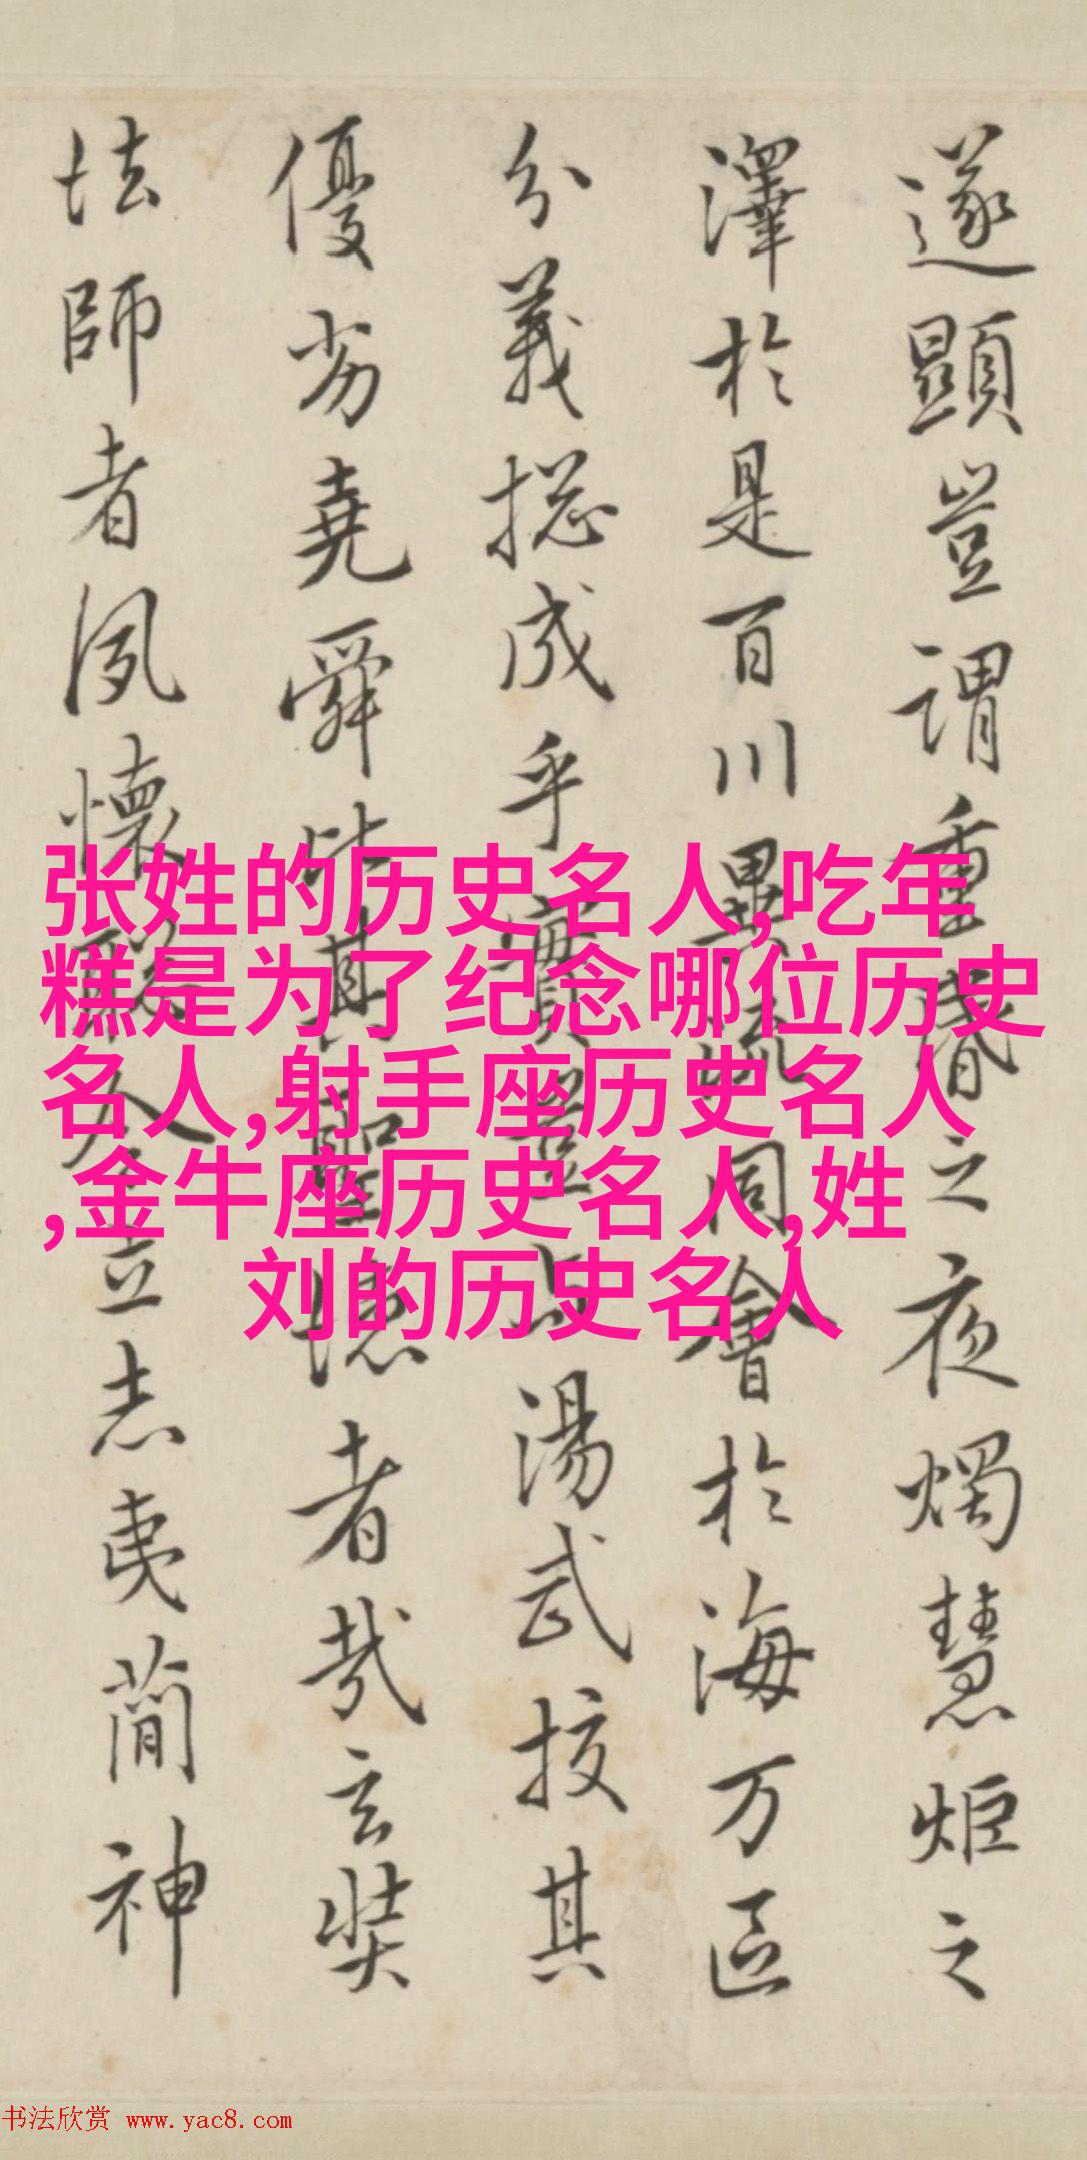 遂顯豈謂重昏之夜燭慧炬之
澤於是百川異流同會於海万區
分義揔成乎實豈与湯武挍其
優劣堯舜比其聖德者哉玄奘
法師者夙懷聡令立志夷簡神
张姓的历史名人,吃年
糕是为了纪念哪位历史
名人,射手座历史名人
,金牛座历史名人,姓
刘的历史名人
书法欣赏 www.yac8.com